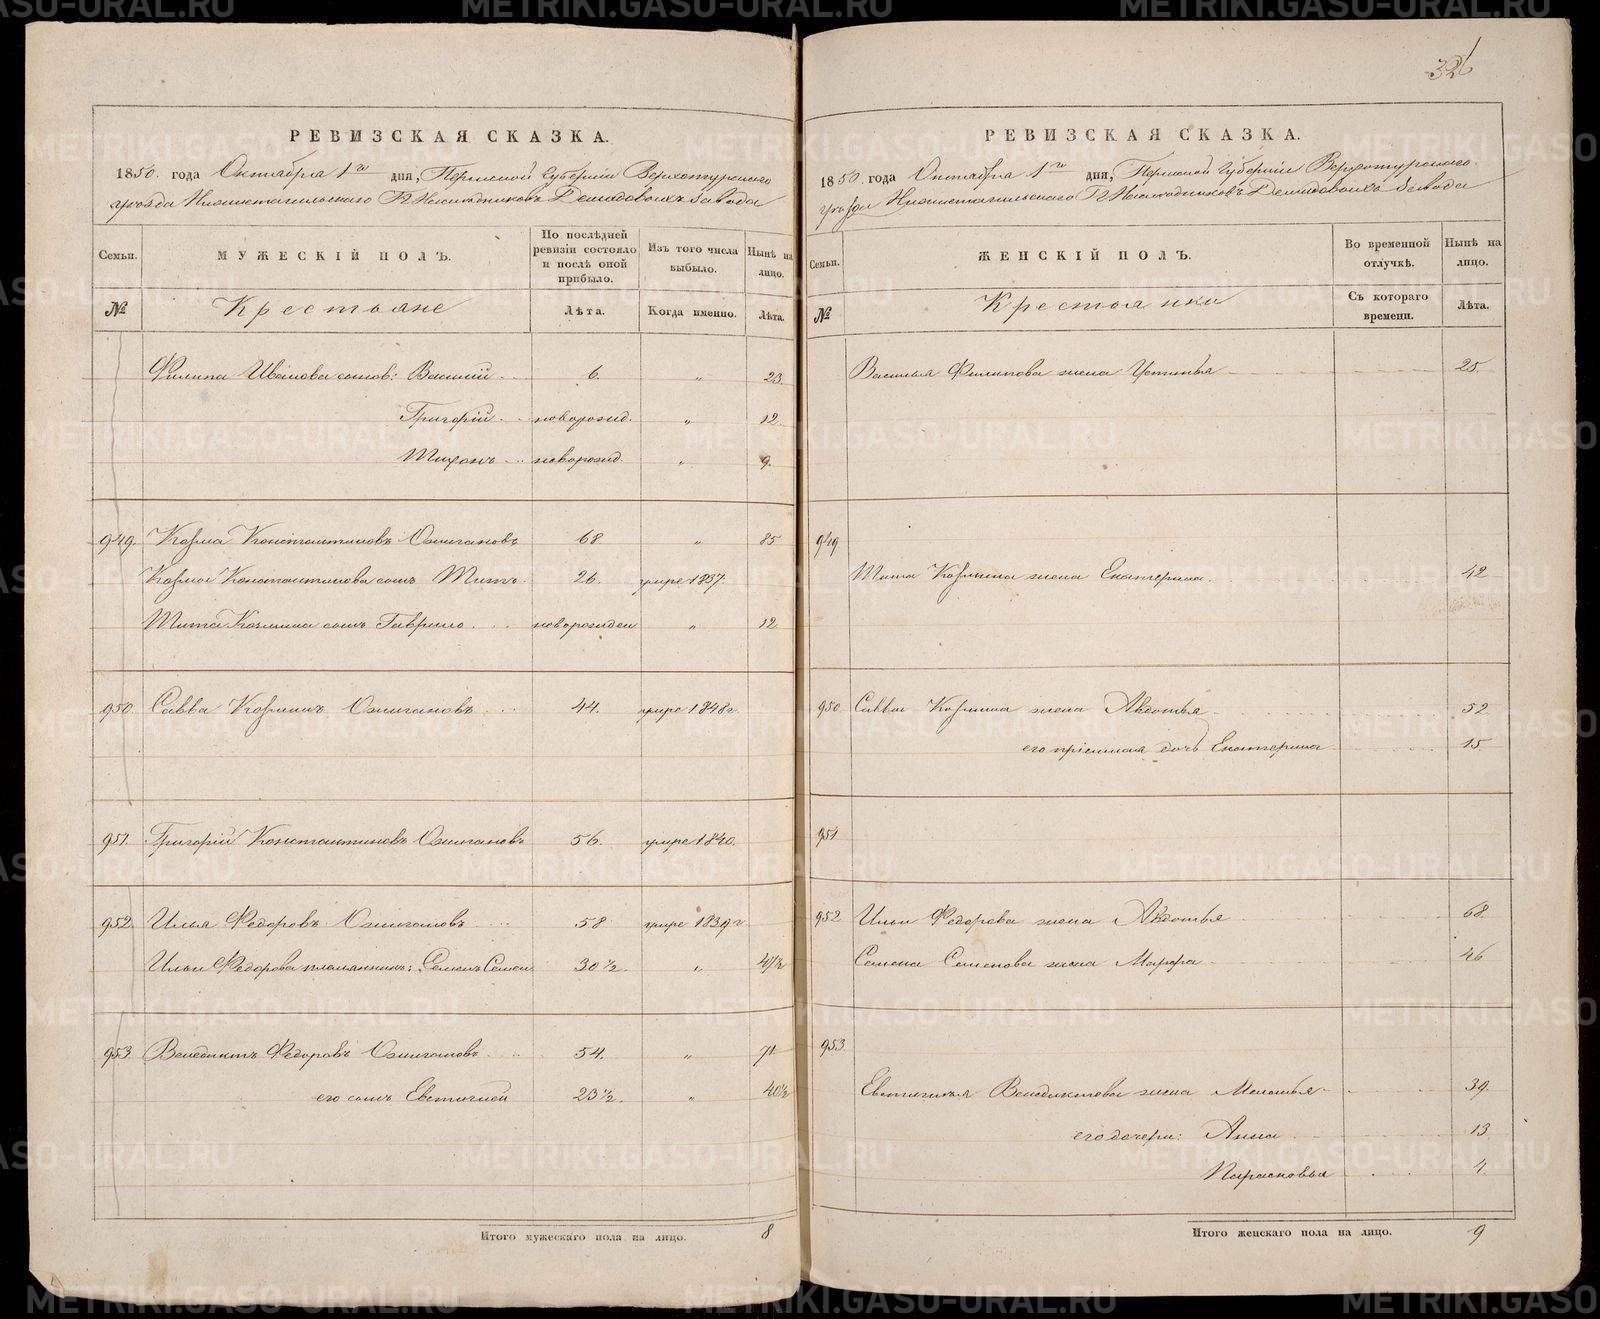 326
РЕВИЗСКАЯ СКАЗКА.
1850. года Октября 1го дня, Пермской Губернии Верхотурского
уезда Нижнетагильского Г. Наследниковъ Демидовыхъ завода
Семьи.
МУЖЕСКІЙ ПОЛЪ.
По послѣдней ревизіи состояло и послѣ оной прибыло.
Изъ того числа выбыло.
Нынѣ на лицо.
№
Крестьяне
Лѣта.
Когда именно.
Лѣта.
Филипа Иванова сынов: Василій 6. " 23.
Григорій новорожд. " 12.
Тихонъ новорожд. " 9.
949. Козма Константиновъ Ожигановъ 68 " 85
Козмы Константинова сынъ Титъ. 26. умре 1837.
Тита Козмина сынъ Гаврило новорожден " 12.
950. Савва Козминъ Ожигановъ 44. умре 1848 г.
951. Григорій Константиновъ Ожигановъ 56. умре 1840.
952. Илья Федоровъ Ожигановъ 58 умре 1839 г
Ильи Федорова племянникъ: Семенъ Семен 30 ½. " 47½
953. Венедиктъ Федоровъ Ожигановъ 54. " 71
его сынъ Евстигней 23 ½. " 40½
Итого мужескаго пола на лицо. 8
РЕВИЗСКАЯ СКАЗКА.
1850. года Октября 1го дня, Пермской Губернии Верхотурского
уезда Нижнетагильского Г. Наследниковъ Демидовыхъ завода
Семьи.
ЖЕНСКІЙ ПОЛЪ.
Во временной отлучкѣ.
Нынѣ на лицо.
№
Крестьянки
Съ котораго времени.
Лѣта.
Василья Филипова жена Устинья 25.
949
Тита Козмина жена Екатерина. 42
950. Саввы Козмина жена Авдотья 52
его пріемная дочь Екатерина 15.
951.
952 Ильи Федорова жена Авдотья 68.
Семена Семенова жена Марфа 46
953.
Евстигнея Венедиктова жена Меланья 39.
его дочери: Анна 13
Парасковья 4
Итого женскаго пола на лицо. 9
METRIKI.GASO-URAL.RU